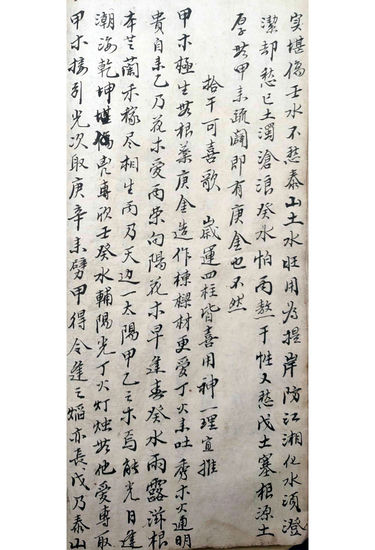 实堪傷壬水不愁泰山土水旺用为提岸防江湘化水須澄
潔却愁已土濁滄浪癸水怕丙熬干性又愁戊土塞根源土
厚無甲来疏闢即有庚金也不然
拾干可喜歌 歲運四柱皆喜用神一理宜推
甲木極生無根葉庚金造作棟樑材更爱丁火来吐秀木火通明
貴自来乙乃花木爱丙荣向陽花木早逢春癸水雨露滋根
本芝蘭禾稼尽相生丙乃天边一太陽甲乙之木焉能光日逢
潮海乾坤堪專欣壬癸水輔陽光丁火灯烛無他爱專取
甲木接引光次取庚辛来劈甲得令逢之焰亦長戊乃泰山